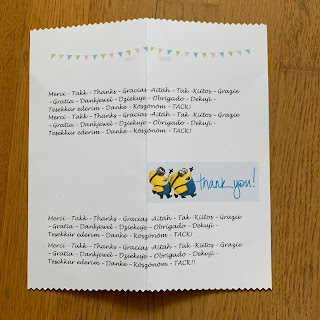 Merci - Takk - Thanks - Gracias - Aitäh - Tak - Kiitos - Grazie
- Gratia - Dankjewel - Dziekuje - Obrigado - Dekuji -
Teşekkür ederim - Danke - Köszönöm - TACK!
Merci - Takk - Thanks - Gracias - Aitäh - Tak - Kiitos - Grazie
- Gratia - Dankjewel - Dziekuje - Obrigado - Dekuji -
Teşekkür ederim - Danke - Köszönöm - TACK!
thank you!
Merci - Takk - Thanks - Gracias - Aitäh - Tak - Kiitos - Grazie
- Gratia - Dankjewel - Dziekuje - Obrigado - Dekuji -
Teşekkür ederim - Danke - Köszönöm - TACK!
Merci - Takk - Thanks - Gracias - Aitäh - Tak - Kiitos - Grazie
- Gratia - Dankjewel - Dziekuje - Obrigado - Dekuji -
Teşekkür ederim - Danke - Köszönöm - TACK!!